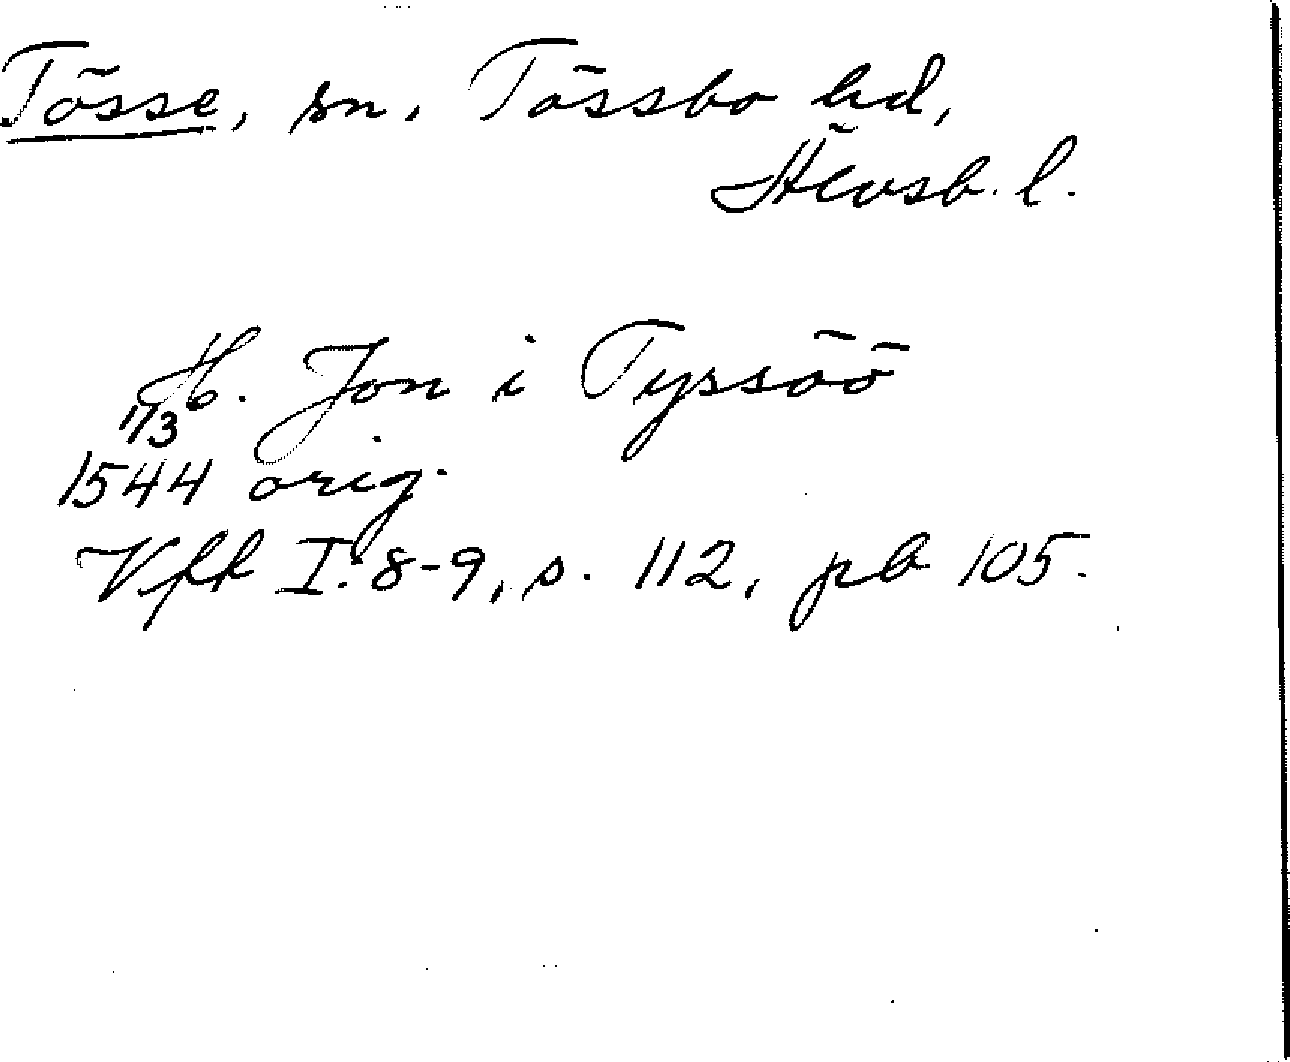 Tösse, sn. Tössbo hd,
Älvsb. l.
H. Jon i Tyssöö
11/3
1544 orig.
Vfft I: 8-9, s. 112, på 105.